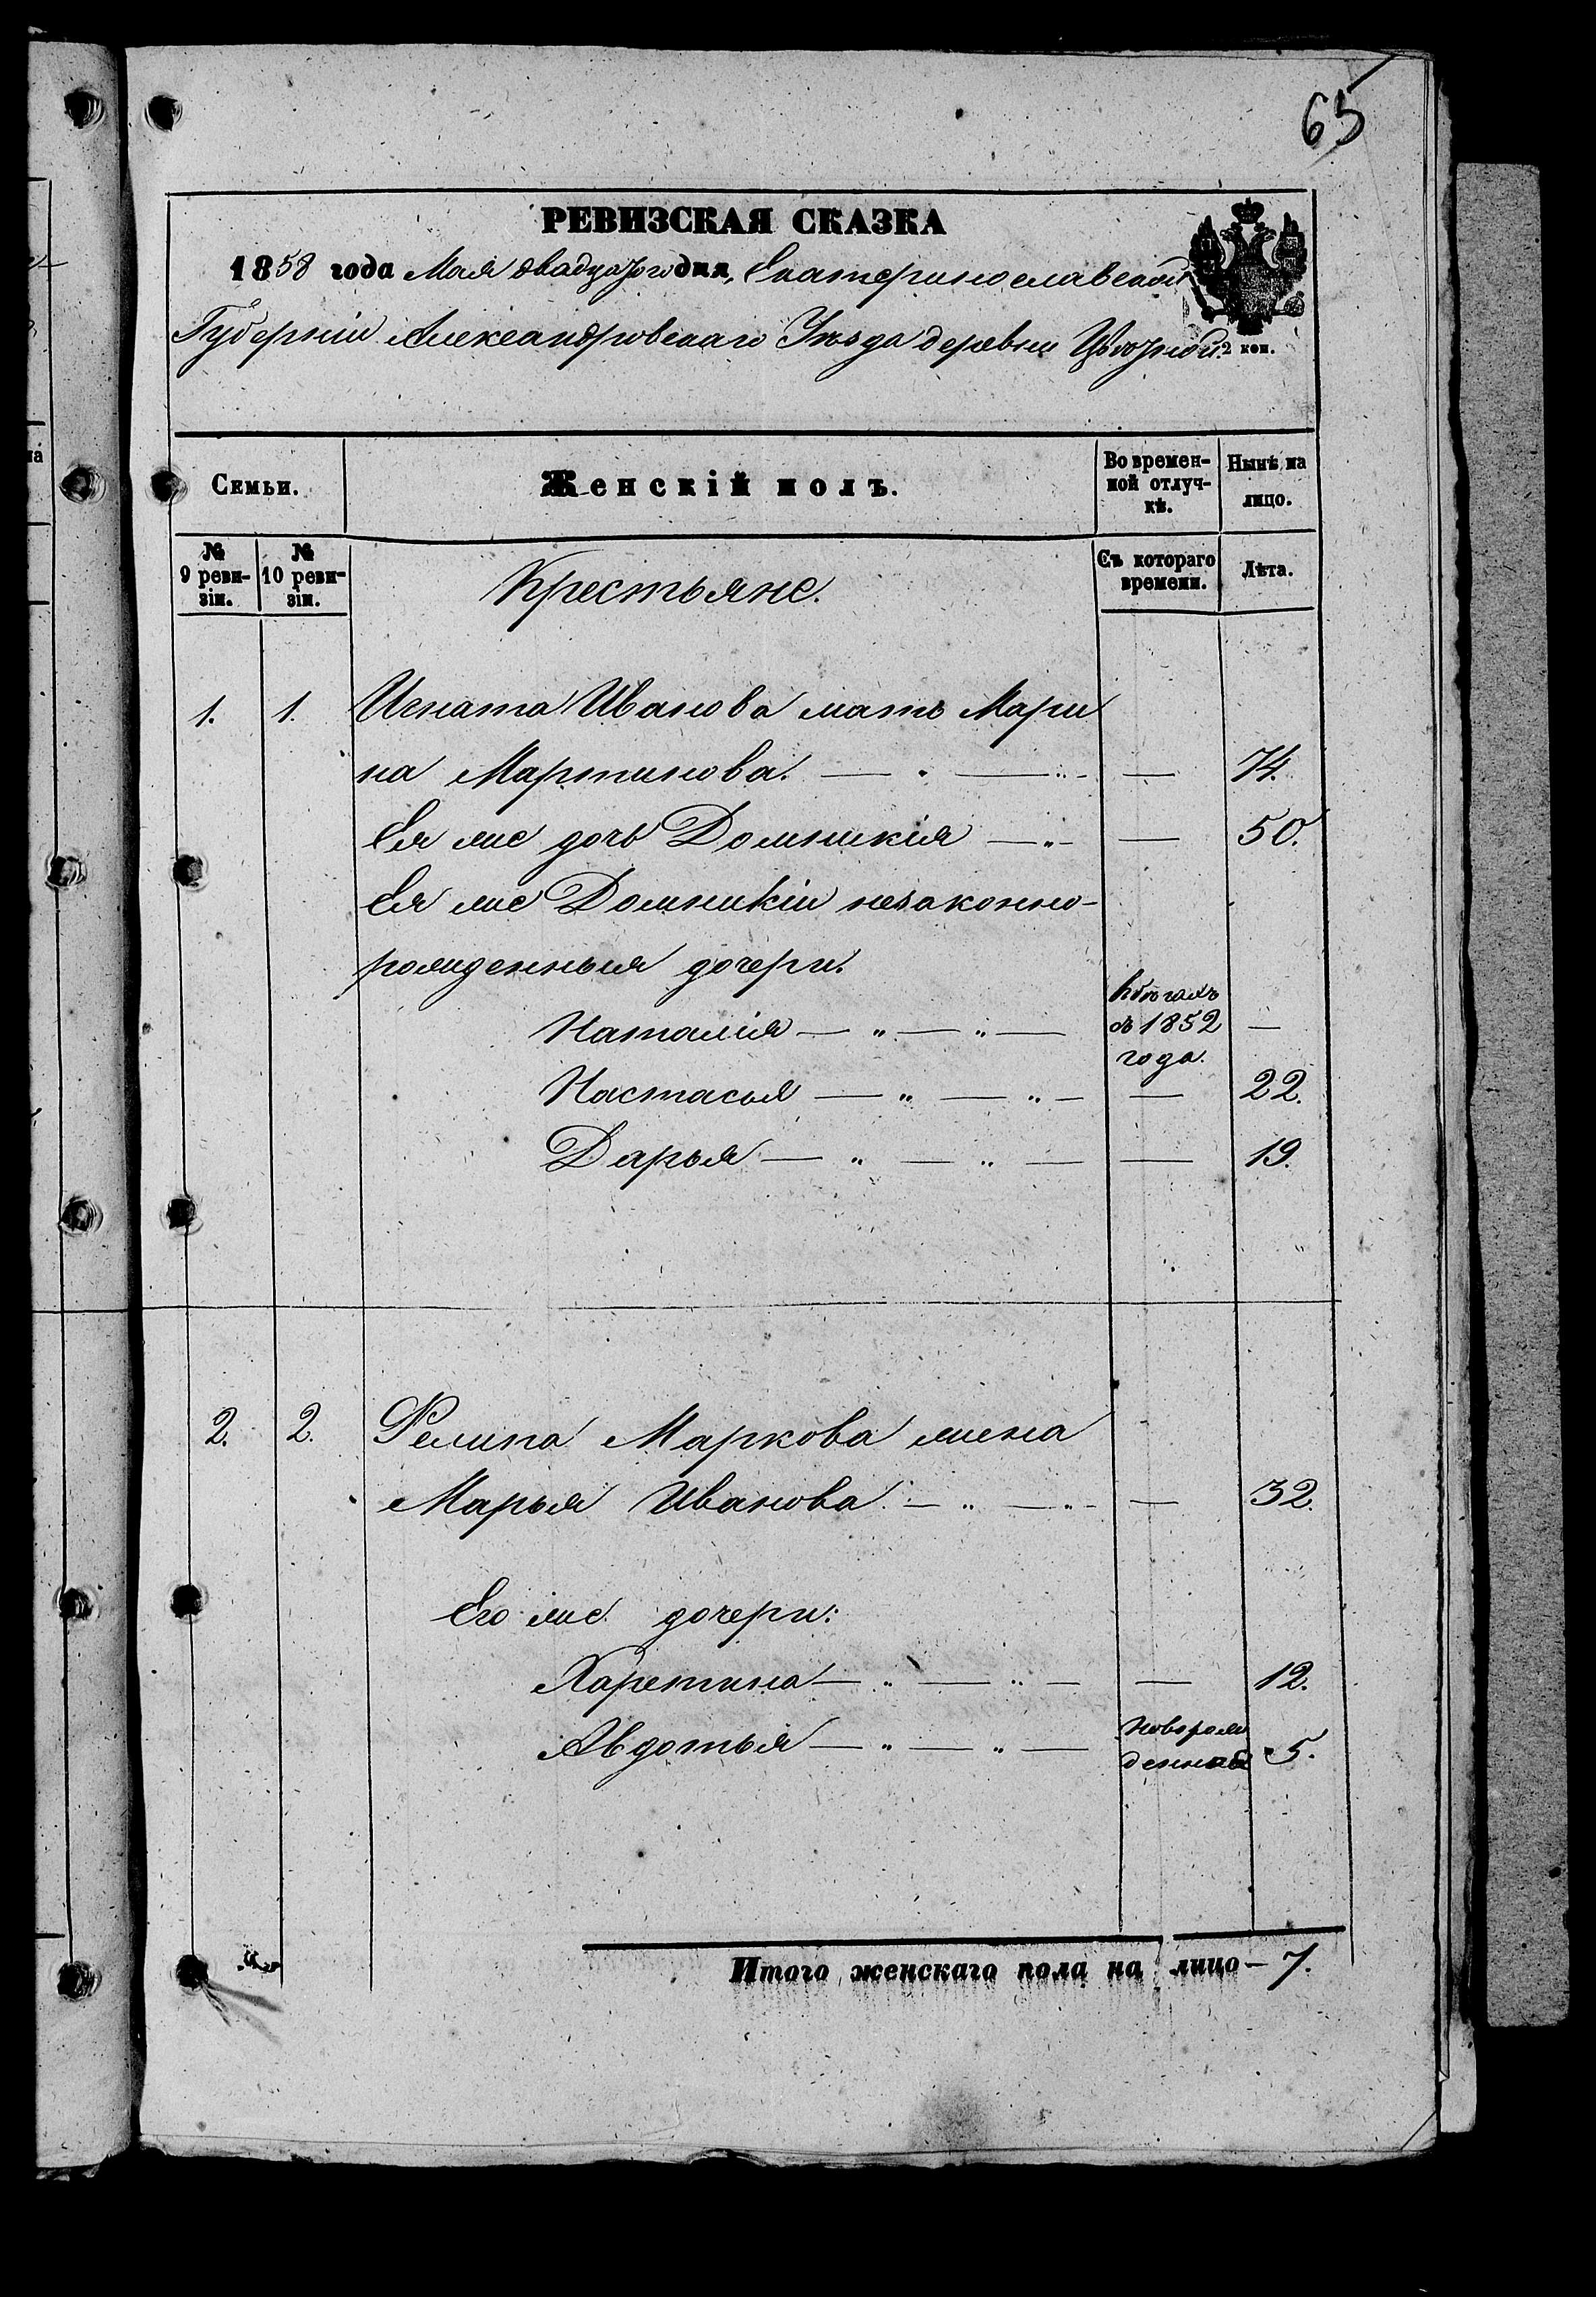 65
РЕВИЗСКАЯ СКАЗКА
1858 года Мая двадцатого дня, Екатеринославской
Губерніи Александровскаго Уѣзда деревни
2 коп.
Семьи.
Женскій полъ.
Во времен-
ной отлуч-
кѣ.
Нынѣ на
лицо.
№
9 реви-
зіи.
№
10 реви-
зіи.
Крестьяне.
Съ котораго
времени.
Лѣта.
1. 1. Игната Иванова мать Мари
на Мартинова. — — — 74.
Ея же дочь Домникія — „ — — 50.
Ея же Домникіи незаконно-
рожденныя дочери.
Наталія — „ — „ — —
съ 1852
года.
Настасья — „ — „ — — 22.
Дарья — „ — „ — — 19.
2. 2. Филипа Маркова жена
Марья Иванова. — „ — „ — — 32.
Его же дочери:
Харетина — „ — „ — — 12.
Авдотья — „ — „ — Новорож
денная 5.
Итого женскаго пола на лицо — 7.